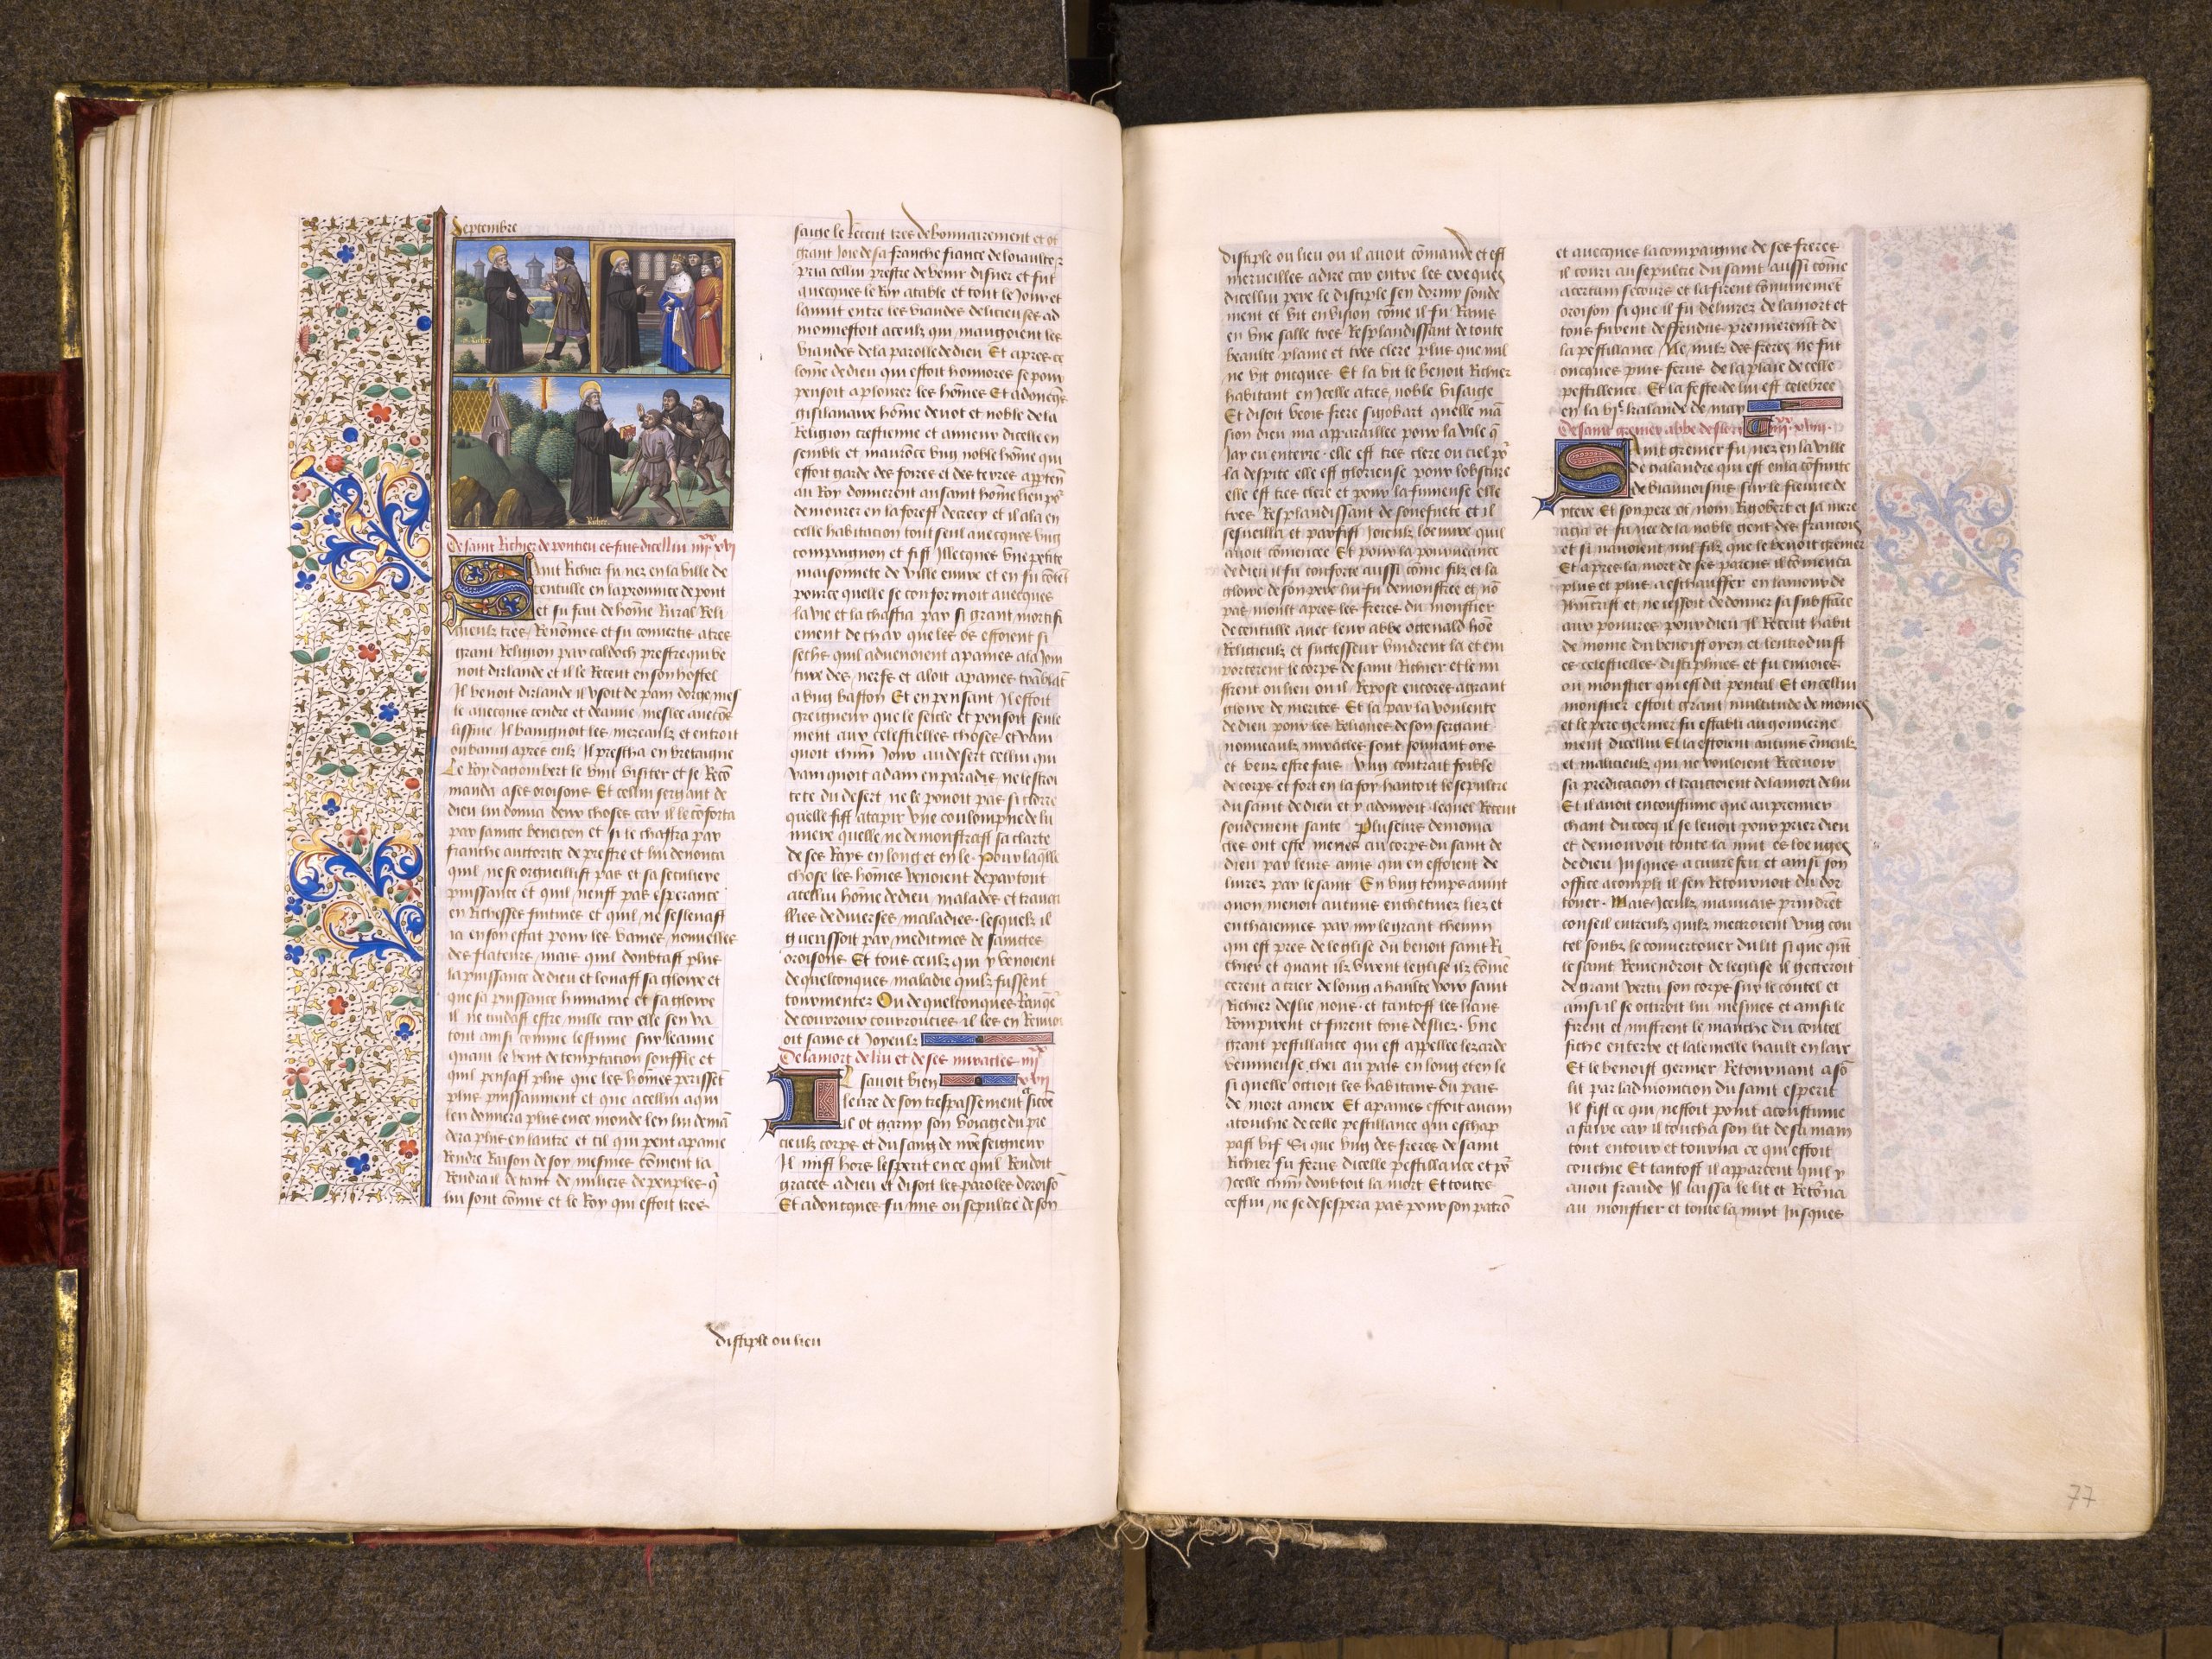 Septembre
s. Richer
Richer
De saint Richier de pontieu es fais dicellui iiii xx xvi
Saint Richier fu nez en la ville de
centulle en la prouince de pont
et fu fait de hõme Rural Reli
gieulx tres Renõmes et fu conuertis a tres
grant Religion par caidoch prestre qui ve
noit dirlande et il le Receut en son hostel
Il venoit dirlande il vsoit de pain dorge mes
le auecques cendre et deaue meslee
Il prescha en bretaigne
Le Roy dagombert le vint visiter et se Recõ
manda a ses oroisons Et cellui sergant de
dieu lui donna deux choses car il le cõforta
par saincte beneicon et si le chastia par
franche auctorite de prestre et lui denonca
quil ne se orgueillist pas et sa seculiere
puissance et quil neust pas esperance
en Richesses et quil ne sesleuast
ia en son estat pour les vaines nouuelles
des flateurs mais quil doubtast plus
la puissance de dieu et louast sa gloire et
que sa puissance humaine et sa gloire
il ne cuidast estre nulle car elle sen va
tout ainsi comme lescume sur leaue
quant le vent de temptacion souffle et
quil pensast plus que les hõmes perissẽt
plus puissaument et que a cellui a qui
len donnera plus en ce monde len lui demã
dera plus en lautre et cil qui peut a paine
Rendre Raison de soy mesmes cõment la
Rendra il de tant de miliers de peuples q̃
lui sont cõmis et le Roy qui estoit tres
saige le Receut tres debonnairement et ot
grant Joie de sa franche fiance de loiaulte
pria cellui prestre de venir disner et fut
auecques le Roy a table et tout le Jour et
la nuit entre les viandes delicieuses ad
monnestoit a ceulx qui mangoient les
viandes de la parolle de dieu Et apres ce
lõme de dieu qui estoit honnores se pour
pensoit a plourer les hõmes Et adoncques
gisilanaire hõme deuot et noble de la
Religion crestienne et ameur dicelle en
semble et maurõce vng noble hõme qui
estoit garde des forestz et des terres apptẽ
au Roy donnerent au saint hõme lieu pͬ
demourer en la forest de crecy et il ala en
celle habitacion tout seul auecques vng
compaignon et fist Illecques vne petite
maisonnete de ville euure et en fu cõtẽt
pour ce quelle se conformoit auecques
la vie et la chastia par si grant mortifi
ement de char que les os estoient si
sechs quil aduenoient a paines a la Join
ture des nerfs et aloit a paines
a vng baston Et en pensant Il estoit
greigneur que le siecle et pensoit seule
ment aux celestielles choses et vain
quoit chũn Jour au desert cellui qui
vainquoit adam en paradis
du desert ne le pouoit pas si clorre
quelle fist vne coulompne de lu
miere quelle ne demonstrast sa clarte
de ses Rays en long et en le Pour laq̃lle
chose les hõmes venoient de par tout
a icellui hõme de dieu malades et trauail
lies de diuerses maladies lesquelz il
guerissoit par medicines de sainctes
oroisons Et tous ceulx qui y venoient
de quelconques maladie quilz fussent
tourmentez Ou de quelconques
de courroux courroucies il les en Reuoi
oit sains et Joyeulx
De la mort de lui et de ses miracles iiii xx xvii
Il sauoit bien
leure de son trespassement
ot garny son voiage du pre
cieulx corps et du sang de nr̃e seigneur
Il mist hors lesperit en ce quil Rendoit
graces a dieu et disoit les paroles doroisõ
Et adoncques fu mis ou sepultre de son
disciple ou lieu
disciple ou lieu ou il auoit cõmande et est
merueilles a dire car entre les
dicellui pere le disciple sen dormy soude
ment et vit en vision cõme il fu Rauis
en vne salle tres Resplandissant de toute
beaulte plaine et tres clere plus que nul
ne vit oncques Et la vit le benoit Richier
habitant en Jcelle a tres noble visaige
Et disoit veois frere sigobart quelle mã
sion dieu ma apparaillee pour la vile q̃
Jay eu en terre elle est tres clere ou ciel pͬ
la despite elle est glorieuse pour lobscure
elle est tres clere et pour la fumeuse elle
tres Resplandissant de souefuete et il
sesueilla et parfist Joieulx loeuure quil
auoit cõmencie Et pour la pourueance
de dieu il fu conforte aussi cõme filz et la
gloire de son pere lui fu demonstree et nõ
pas moult apres les freres du monstier
de centulle auec leur abbe octenald hõe
Religieulx et successeur vindrent la et em
porterent le corps de saint Richier et le mi
strent ou lieu ou il Repose encores a grant
gloire de merites Et la par la voulente
de dieu pour les Reliques de son sergant
nouueaulx miracles sont souuant oys
et veuz estre fais Vng contrait foible
de corps et fort en la foy hantoit le sepultre
du saint de dieu et y adouroit lequel Receut
soudement sante Pluseurs demonia
cles ont este menes au corps du saint de
dieu par leurs amis qui en estoient de
liurez par le saint En vng temps auint
quon menoit aucuns enchetiuez liez et
enchaiennes par my le grant chemin
qui est pres de leglise du benoit saint Ri
chier et quant ilz virent leglise ilz cõmẽ
cerent a crier de loing a haulte voix saint
Richier deslie nous et tantost les lians
Rompirent et furent tous desliez Vne
grant pestillance qui est appellee lezarde
venimeuse chei au pais en long et en le
si quelle occioit les habitans du pais
de mort amere Et a paines estoit aucun
atouchie de celle pestillance qui eschap
past vif Si que vng des freres de saint
Richier fu ferus dicelle pestillance et pͬ
Jcelle chũn doubtoit la mort Et toutes
cestui ne se desespera pas pour son patrõ
et auecques la compaignie de ses freres
il couri au sepultre du saint aussi cõme
a certain secours et la firent cõmunemẽt
oroison si que il fu deliurez de la mort et
tous furent deffendus premieremẽt de
la pestillance Ne nulz des freres ne fut
oncques puis ferus de la plaie de celle
pestillence Et la feste de lui est celebree
en la vi.ͤ kalande de may
De saint gremer abbe de iiii xx xviii
Saint gremer fu nez en la ville
de valandre qui est en la cõfinite
de biauuoisins sur le fleuue de
ytere Et son pere ot nom Rigobert et sa mere
aga et fu nez de la noble gent des francois
et si nauoient nul filz que le benoit gremer
Et apres la mort de ses parens il cõmenca
plus et plus a eschauffer en lamour de
Jhũcrist et ne cessoit de donner sa substãce
aux pouures pour dieu Il Receut habit
de moine du benoist oyen et lentroduist
es celestielles disciplines et fu enuoies
ou monstier qui est dit pental Et en cellui
monstier estoit grant multitude de moines
et le pere germer fu establi au gouuerne
ment dicellui Et la estoient aucuns ẽnieulx
et malicieulx qui ne vouloient Receuoir
sa predicacion et traictoient de la mort de lui
Et il auoit en coustume que au premier
chant du cocq il se leuoit pour prier dieu
et demouroit toute la nuit es loenges
de dieu Jusques a cuurefeu et ainsi son
office acompli il sen Retournoit du dor
touer Mais Jceulx mauuais prindrẽt
conseil entreulx quilz mectroient vng cou
tel soubz le couuertouer du lit si que quãt
le saint Reuiendroit de leglise il getteroit
de grant vertu son corps sur le coutel et
ainsi il se occiroit lui mesmes et ainsi le
firent et mistrent le manche du coutel
fichie en terre et lalemelle hault en lair
Et le benoist germer Retournant a sõ
lit par ladmonicion du saint esperit
Il fist ce qui nestoit point acoustume
a faire car il toucha son lit de sa main
tout entour et tourna ce qui estoit
couchie Et tantost il apparceut quil y
auoit fraude Il laissa le lit et Retõna
au monstier et toute la nuyt Jusques
77